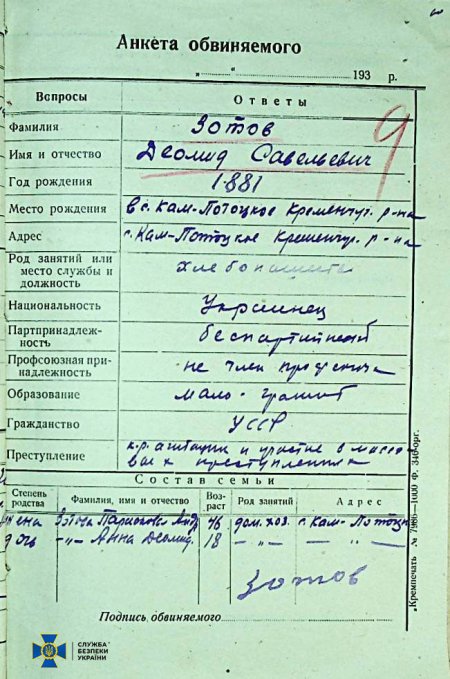 Анкета обвиняемого
„ “ 193 р.
Вопросы Ответы
Фамилия Зотов
Имя и отчество Деомид Савельевич
Год рождения 1881
Место рождения в с. Кам-Потоцкое Кременчуг. р-на
Адрес с. Кам-Потоцкое Кременчуг. р-на
Род занятий или место службы и должность
Национальность Украинец
Партпринадлежность беспартийный
Профсоюзная принадлежность не член профсоюза
Образование мало-грамот
Гражданство УССР
Преступление к.р. агитация и участие в массо
вых преступлениях
Состав семьи
Степень родства Фамилия, имя и отчество Возраст Род занятий Адрес
жена Зотова 46 дом. хоз. с. Кам-Потоцк
дочь -„- Анна Деомид. 18 -„- -„-
Зотов
Подпись обвиняемого
„Кремпечать" № 7968—1000 Ф. 346-орг.
9
СЛУЖБА
БЕЗПЕКИ
УКРАЇНИ